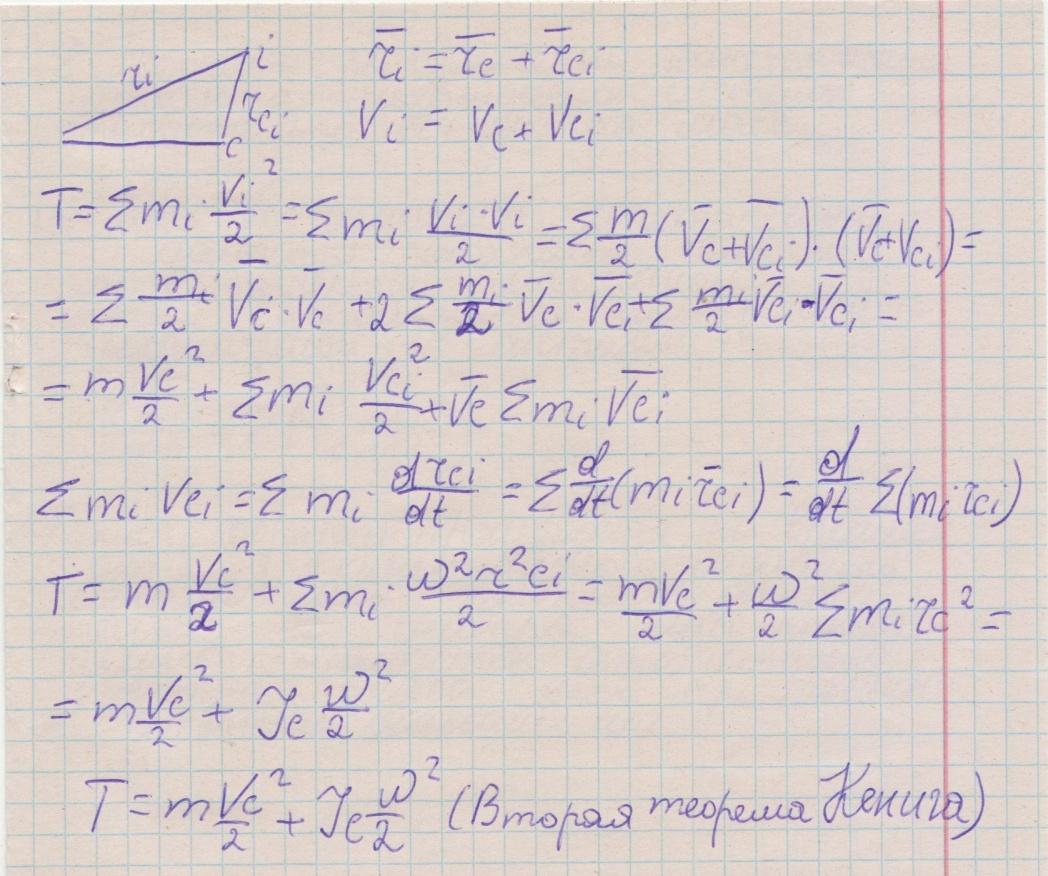 i
rᵢ
r_cᵢ
c
r̄ᵢ = r̄c + r̄cᵢ
Vᵢ = Vc + Vcᵢ
T = Σmᵢ · Vᵢ²/2 = Σmᵢ · Vᵢ·Vᵢ/2 = Σ m/2 (V̄c + V̄cᵢ) · (V̄c + Vcᵢ) =
= Σ mᵢ/2 V̄c · V̄c + 2Σ mᵢ/2 V̄c · V̄cᵢ + Σ mᵢ/2 V̄cᵢ · V̄cᵢ =
= m Vc²/2 + Σmᵢ Vcᵢ²/2 + V̄c Σmᵢ V̄cᵢ
Σmᵢ Vcᵢ = Σ mᵢ · drcᵢ/dt = Σ d/dt (mᵢ r̄cᵢ) = d/dt Σ(mᵢ rcᵢ)
T = m Vc²/2 + Σmᵢ · ω²r²cᵢ/2 = mVc²/2 + ω²/2 Σmᵢ rc² =
= m Vc²/2 + Jc ω²/2
T = m Vc²/2 + Jc ω²/2 (Вторая теорема Кенига)